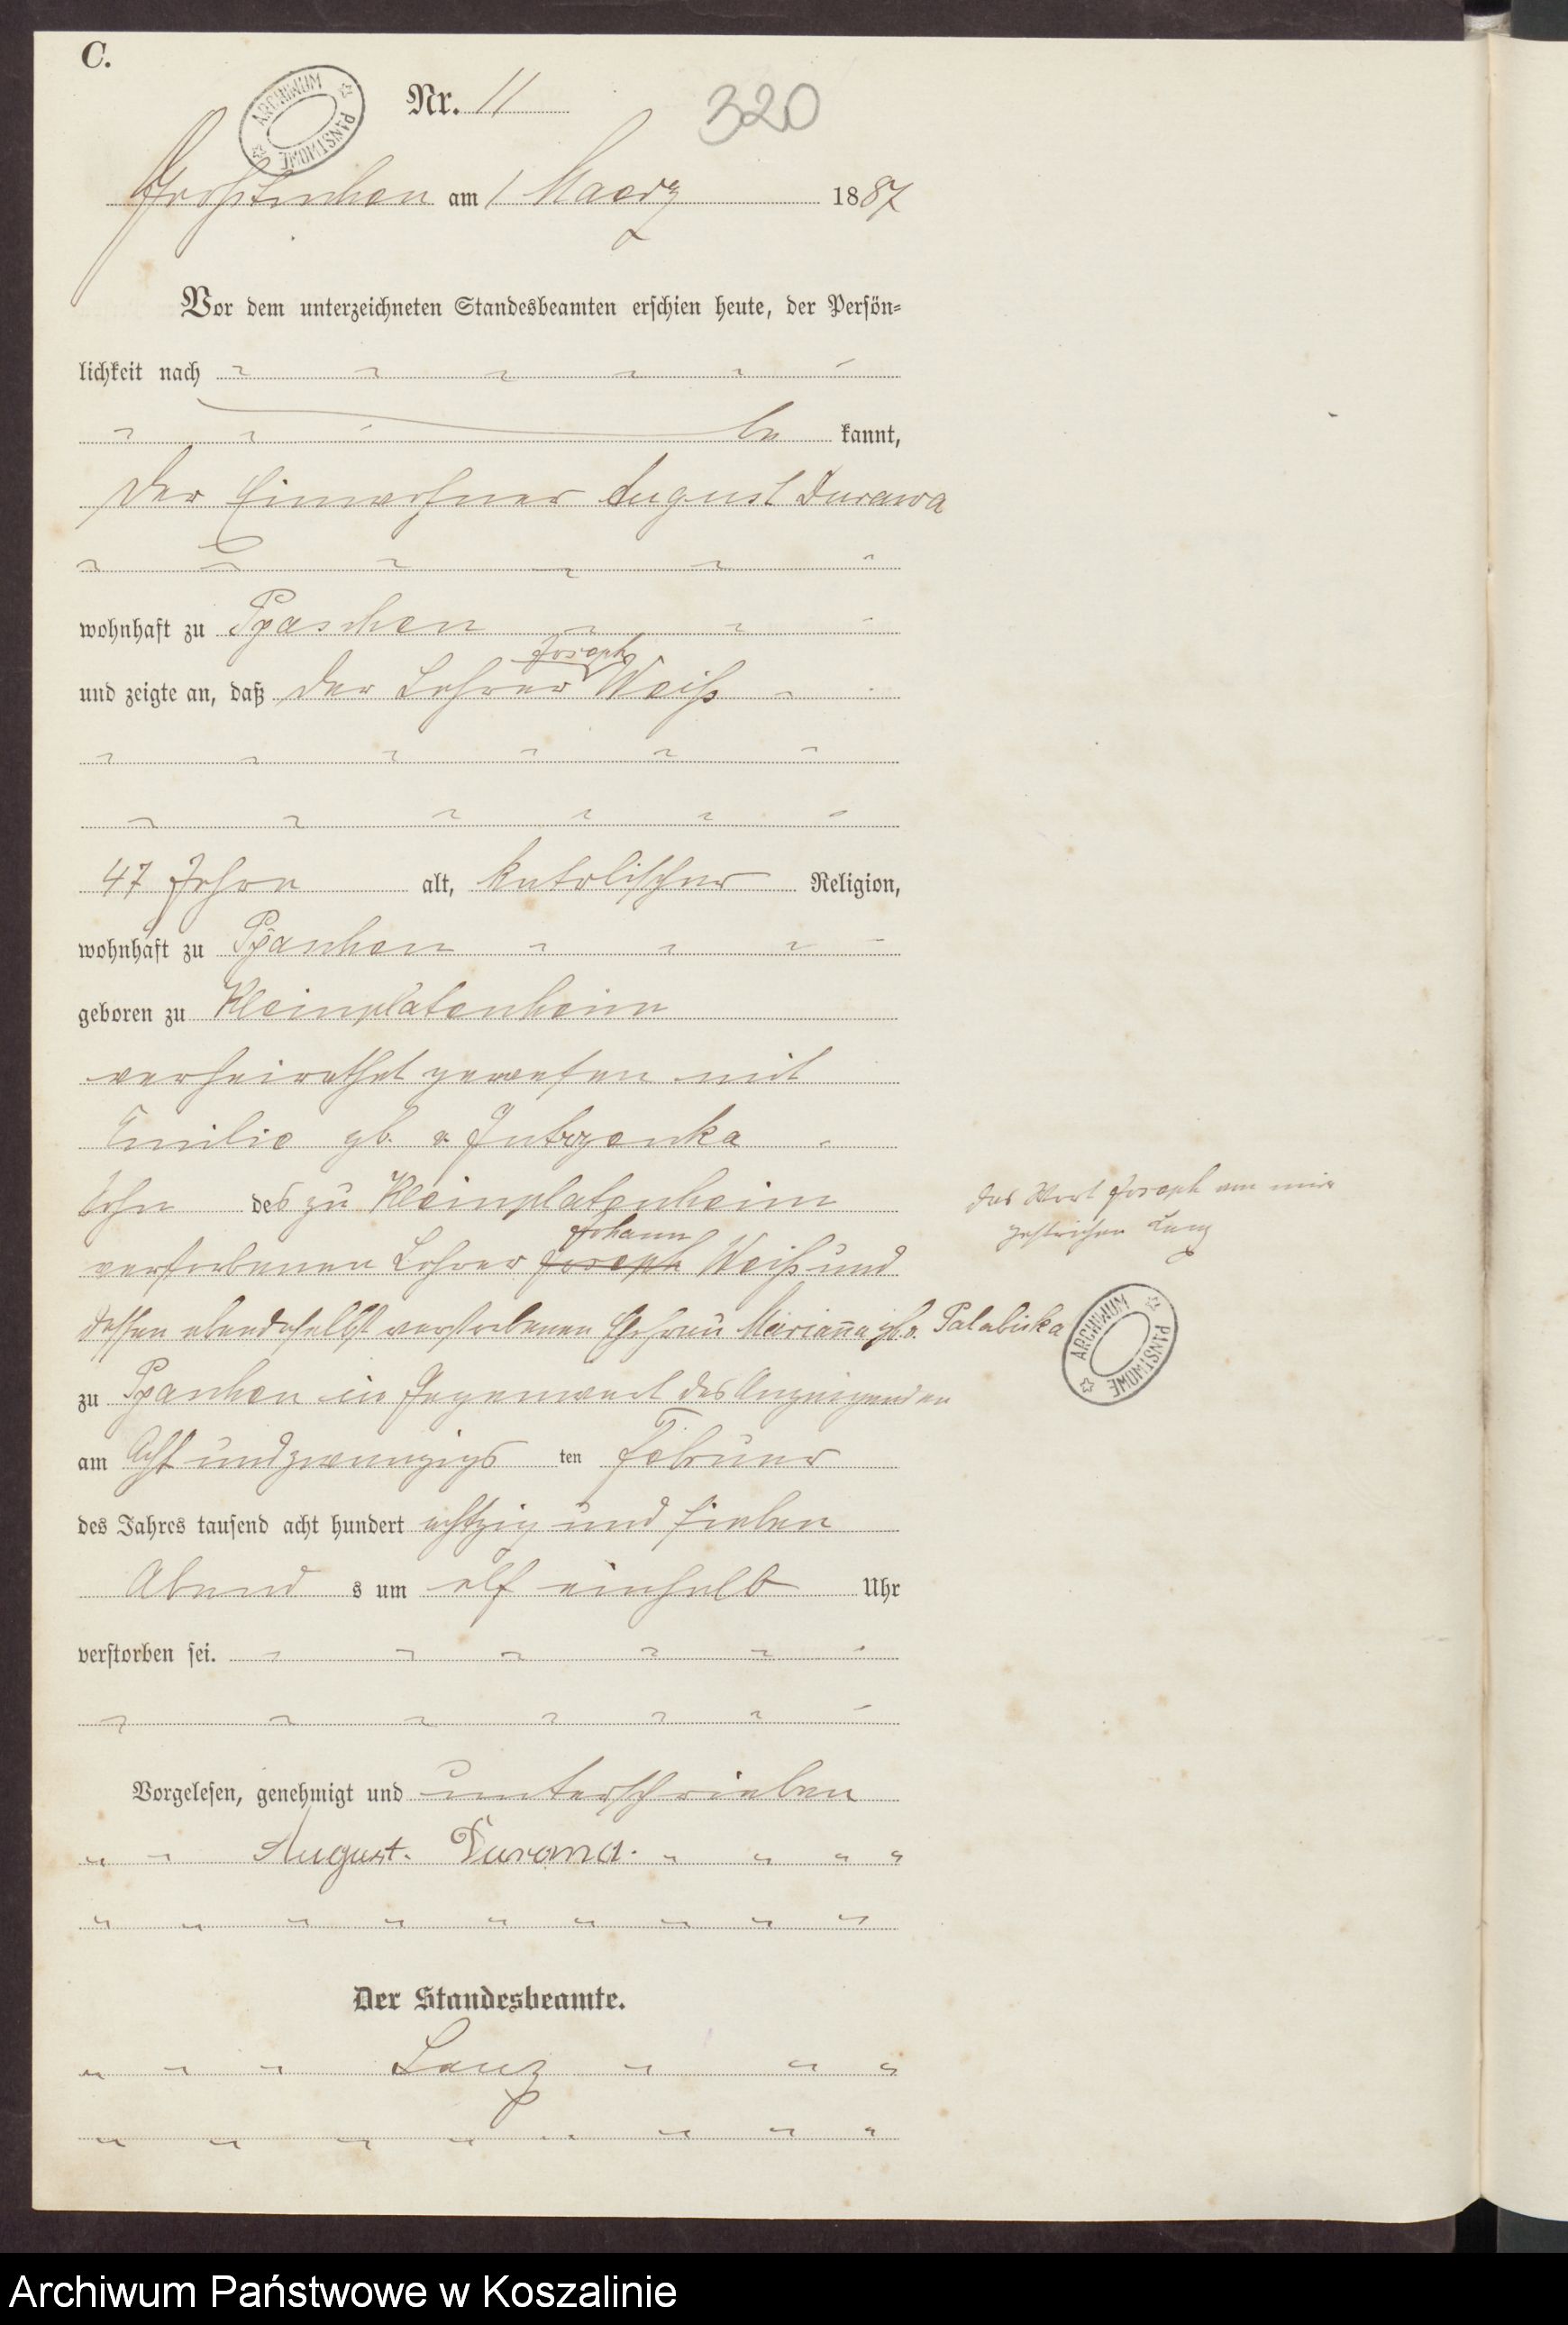 C.
ARCHIWUM PAŃSTWOWE
Nr. 11
320
am 1 Maerz 1887
Vor dem unterzeichneten Standesbeamten erschien heute, der Persön-
lichkeit nach
be kannt,
Der Einwohner August Durawa
wohnhaft zu
und zeigte an, daß Der Lehrer Joseph Weiß
47 Jahre alt, katolischer Religion,
wohnhaft zu
geboren zu Kleinplatenheim
verheirathet gewesen mit
Emilie gb. v. Jutrzenka
Sohn des zu Kleinplatenheim
verstorbenen Lehrer Joseph Johann Weiß und
dessen ebendaselbst verstorbenen Ehefrau Marianna gb. v. Palabicka
zu in Gegenwart des Anzeigenden
am Acht und zwanzigs ten Februar
des Jahres tausend acht hundert achtzig und sieben
Abend s um elf einhalb Uhr
verstorben sei.
Das Wort Joseph
gestrichen Lanz
ARCHIWUM PAŃSTWOWE
Vorgelesen, genehmigt und unterschrieben
August. Durawa.
Der Standesbeamte.
Lanz
Archiwum Państwowe w Koszalinie